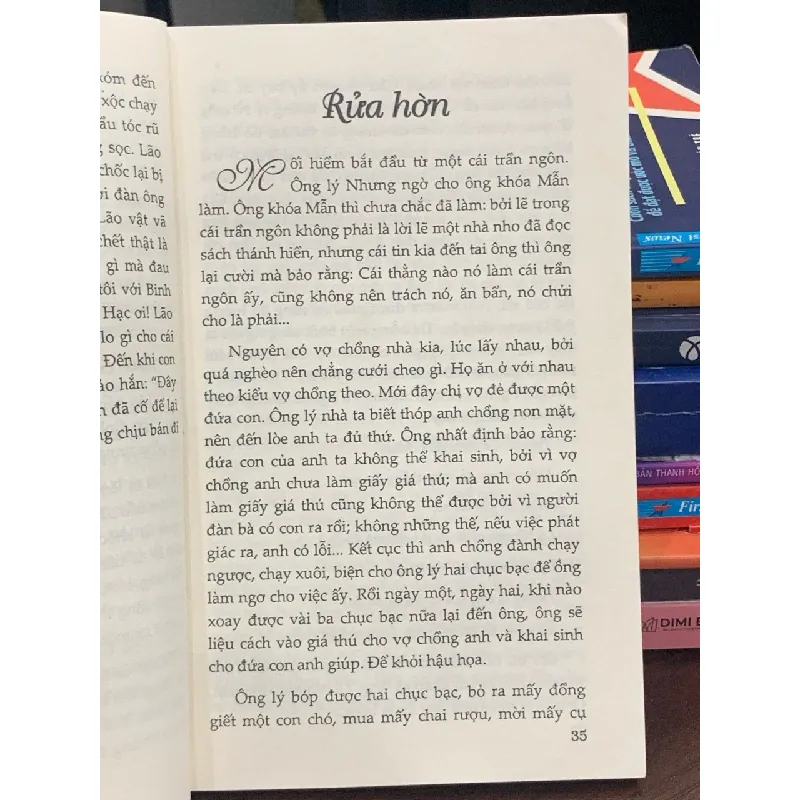 xóm đến
xộc chạy
ầu tóc rũ
sọc. Lão
chốc lại bị
ời đàn ông
Lão vật vã
hết thật là
gì mà đau
tôi với Binh
Hạc ơi! Lão
lo gì cho cái
Đến khi con
ảo hắn: “Đây
đã cố để lại
ng chịu bán đi
Rửa hờn
Mối hiềm bắt đầu từ một cái trần ngôn.
Ông lý Nhưng ngờ cho ông khóa Mẫn
làm. Ông khóa Mẫn thì chưa chắc đã làm: bởi lẽ trong
cái trần ngôn không phải là lời lẽ một nhà nho đã đọc
sách thánh hiền, nhưng cái tin kia đến tai ông thì ông
lại cười mà bảo rằng: Cái thằng nào nó làm cái trần
ngôn ấy, cũng không nên trách nó, ăn bẩn, nó chửi
cho là phải...
Nguyên có vợ chồng nhà kia, lúc lấy nhau, bởi
quá nghèo nên chẳng cưới cheo gì. Họ ăn ở với nhau
theo kiểu vợ chồng theo. Mới đây chị vợ đẻ được một
đứa con. Ông lý nhà ta biết thóp anh chồng non mặt,
nên đến lòe anh ta đủ thứ. Ông nhất định bảo rằng:
đứa con của anh ta không thể khai sinh, bởi vì vợ
chồng anh chưa làm giấy giá thú; mà anh có muốn
làm giấy giá thú cũng không thể được bởi vì người
đàn bà có con ra rồi; không những thế, nếu việc phát
giác ra, anh có lỗi... Kết cục thì anh chồng đành chạy
ngược, chạy xuôi, biện cho ông lý hai chục bạc để ông
làm ngơ cho việc ấy. Rồi ngày một, ngày hai, khi nào
xoay được vài ba chục bạc nữa lại đến ông, ông sẽ
liệu cách vào giá thú cho vợ chồng anh và khai sinh
cho đứa con anh giúp. Để khỏi hậu họa.
Ông lý bóp được hai chục bạc, bỏ ra mấy đồng
giết một con chó, mua mấy chai rượu, mời mấy cụ
35
để đạt được ước mơ và
st News
BẢN THANH HÓ
Fir
DIMI B